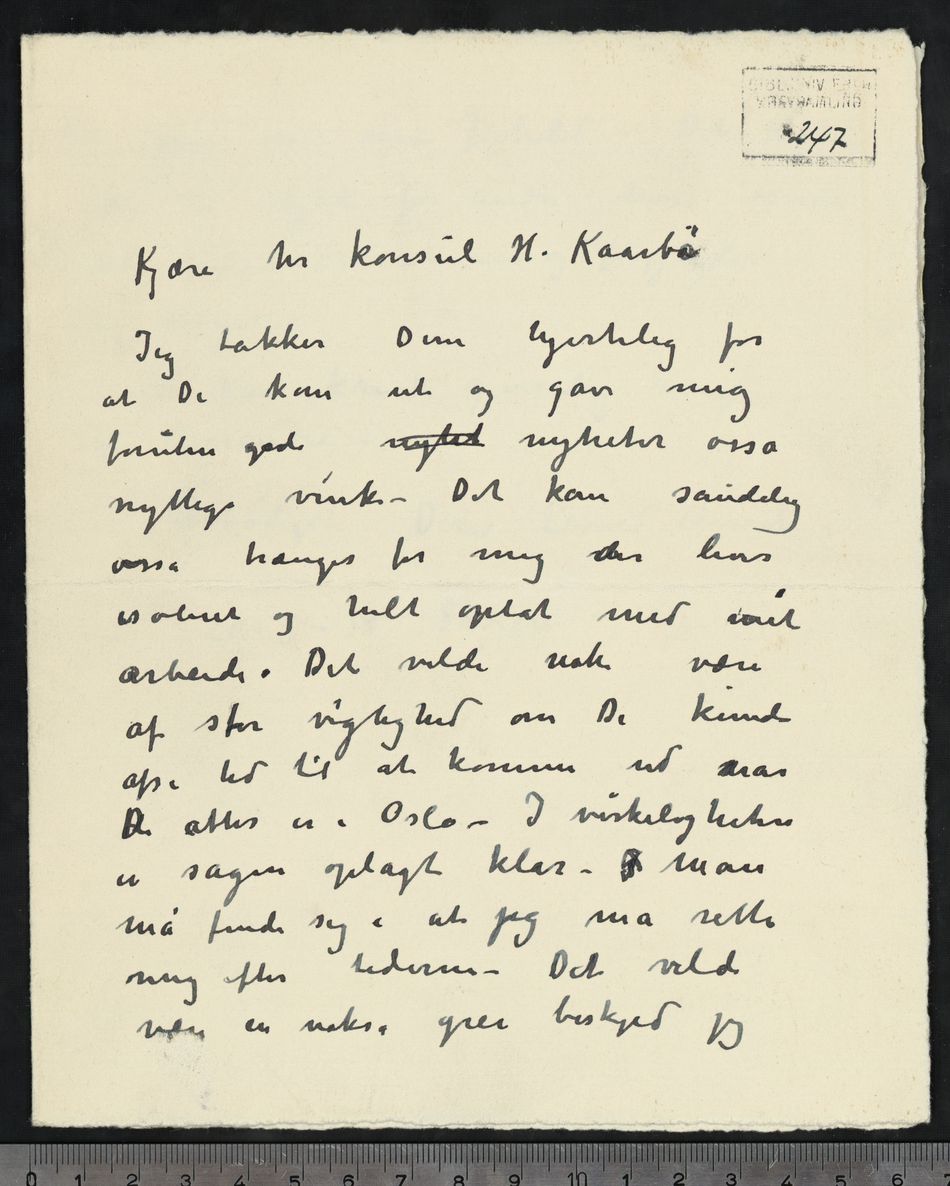 247
Kjære hr konsul H. Kaarbö
Jeg takker Dem hjertelig for
at De kom ut og gave mig
foruten gode nytet nyheter ossa
nyttige vink – Det kan sandelig
ossa trænges for mig der lever
isoleret og helt optat med mit
arbeide. Det vilde nok være
af stor vigtighed om De kunde
afse tid til at komme ud naar
De atter er i Oslo – I virkeligheten
er sagen oplagt klar – Man
må finde sig i at jeg ma rette
mig efter tiderne – Det vilde
være en noksa grei beskjed jeg
0 1 2 3 4 5 6 7 8 9 10 1 2 3 4 5 6